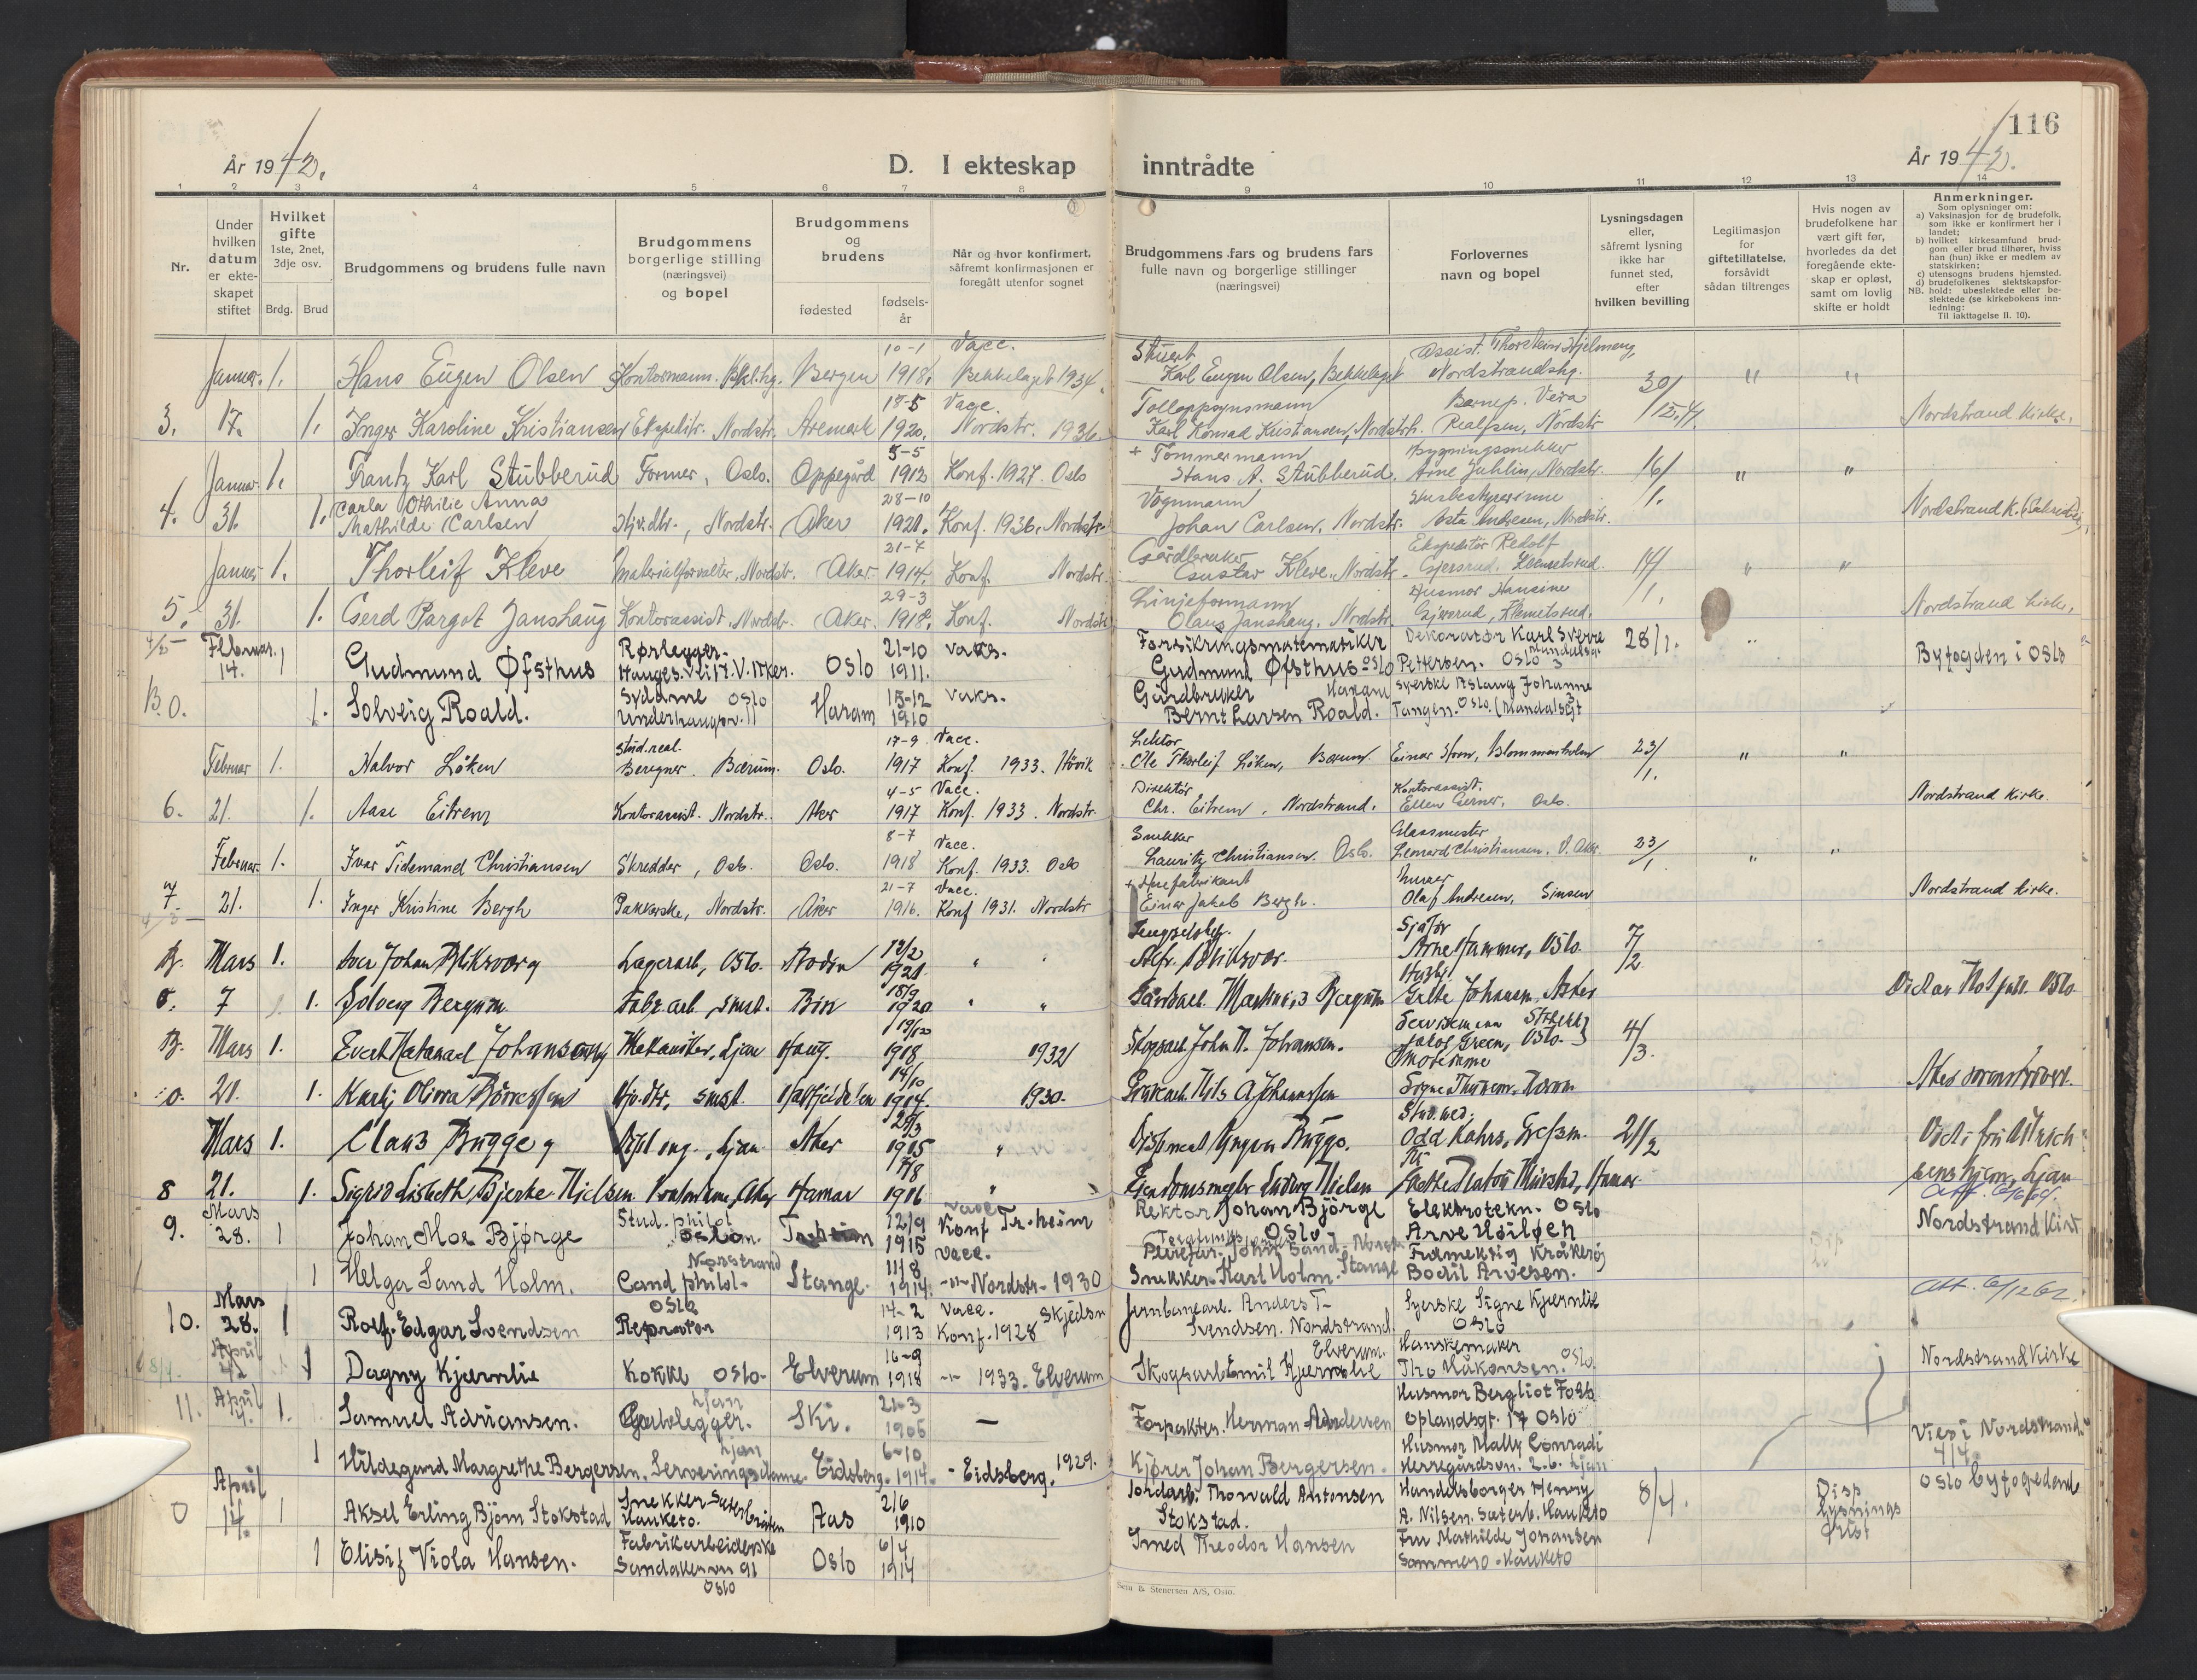 116
År 1942.
D. I ekteskap inntrådte
År 1942.
1 2 3 4 5 6 7 8 9 10 11 12 13 14
Nr.
Under hvilken datum er ekte-skapet stiftet
Hvilket gifte 1ste, 2net, 3dje osv.
Brdg. Brud
Brudgommens og brudens fulle navn
Brudgommens borgerlige stilling (næringsvei) og bopel
Brudgommens og brudens
fødested
fødsels-år
Når og hvor konfirmert, såfremt konfirmasjonen er foregått utenfor sognet
Brudgommens fars og brudens fars fulle navn og borgerlige stillinger (næringsvei)
Forlovernes navn og bopel
Lysningsdagen eller, såfremt lysning ikke har funnet sted, efter hvilken bevilling
Legitimasjon for giftetillatelse, forsåvidt sådan tiltrenges
Hvis nogen av brudefolkene har vært gift før, hvorledes da det foregående ekte-skap er opløst, samt om lovlig skifte er holdt
Anmerkninger.
Som oplysninger om:
a) Vaksinasjon for de brudefolk, som ikke er konfirmert her i landet;
b) hvilket kirkesamfund brud-gom eller brud tilhører, hviss han (hun) ikke er medlem av statskirken;
c) utensogns brudens hjemsted.
d) brudefolkenes slektskapsfor-hold: ubeslektede eller be-slektede (se kirkebokens inn-ledning:
NB.
Til iakttagelse II. 10).
10-1 Vacc. Stuert Assist. Thorstein Hjelmeng,
Januar. 1. Hans Eugen Olsen Kontormann. Bkl.hg. Bergen 1918. Bekkelaget 1934. Karl Eugen Olsen, Bekkelaget Nordstrandshg. 30/ " "
18-5 Vacc. Tolloppsynsmann Barnep. Vera
3. 17. 1. Inger Karoline Kristiansen Ekspeditr. Nordstr. Aremark 1920. Nordstr. 1936. Karl Konrad Kristiansen, Nordstr. Realfsen, Nordstr. /12.41. Nordstrand kirke.
5-5 + Tømmermann Bygningssnekker
Januar. 1. Frantz Karl Stubberud Former, Oslo. Oppegård 1912 Konf. 1927. Oslo Hans A. Stubberud. Arne Juhlin, Nordstr. 16/ " "
Carla Othilie Anna 28-10 Vognmann Husbestyrerinne
4. 31. 1. Mathilde Carlsen Hjv.dtr., Nordstr. Aker 1921. Konf. 1936. Nordstr. Johan Carlsen, Nordstr. Asta Andresen, Nordstr. 1. Nordstrand k.
21-7 Gårdbruker Ekspeditør Redolf
Januar 1. Thorleif Kleve Materialforvalter, Nordstr. Aker. 1914. Konf. Nordstr. Gustav Kleve, Nordstr. Gjersrud. Klemetsrud. 14/ " "
29-3 Linjeformann Husmor Hansine
5. 31. 1. Gerd Margot Janshaug Kontorassist. Nordstr. Aker. 1918. Konf. Nordstr. Olaus Janshaug, Nordstr. Gjersrud, Klemetsrud. /1. Nordstrand kirke,
4/2 Februar. Rørlegger. 21-10 Vaks. Forsikringsmatematiker Dekoratør Karl Sverre 28/1. "
14. 1 Gudmund Øfsthus Hauges.vei 17. V. Aker. Oslo 1911. Gudmund Øfsthus Oslo Pettersen. Oslo Mandalsg. 3 Byfogden i Oslo
Sydame Oslo 15-12 Vaks. Gårdbruker Haram Syerske Aslaug Johanne
B.O. 1. Solveig Roald. Underhaugsv. 11 Haram 1910 Bernt Larsen Roald. Tangen. Oslo. (Mandalsgt
Stud.real. 17-9 Vacc. Lektor
Februar 1. Halvor Løken Bergner. Bærum. Oslo. 1917 Konf. 1933. Høvik Ole Thorleif Løken, Bærum. Einar Horn, Blommenholm 23/1. " "
4-5 Vacc. Direktør Kontorassist.
6. 21. 1. Aase Eitrem Kontorassist. Nordstr. Aker 1917 Konf. 1933. Nordstr. Chr. Eitrem, Nordstrand. Ellen Gerner, Oslo. Nordstrand kirke.
8-7 Vacc. Snekker Glassmester
Februar. 1. Ivar Tidemand Christiansen Skredder, Oslo. Oslo. 1918 Konf. 1933. Oslo Lauritz Christiansen. Oslo. Leonard Christiansen. V. Aker. 23/1 " "
21-7 Vacc. + Huefabrikant Murer
7. 21. 1. Inger Kristine Bergh Pakkerske, Nordstr. Aker 1916. Konf 1931. Nordstr Einar Jakob Bergh. Olaf Andresen, Sinsen Nordstrand kirke.
Sjåfør
B. Mars 1. Lagerarb, Oslo. Bodin 1921. " Arne Hammer, Oslo. 7/2.
o. 7 1. Solveig Bergum 18/9 1920 " " Martinius Bergum Grete Johansen, Aker Oslo
B. Mars 1. Mekaniker, Ljan Haug. 1918 1932 Skogsarb. John N. Johansen. Oslo. 4/3.
o. 21. 1. Hjv.dtr. smst. Hattfjeldalen 14/10 1914. 1930.
Stud.med.
Mars 1. Claus Bugge Dipl. ing., Ljan Aker 1905 " Yngvar Bugge. Odd Kahrs, 21/2
8 21. 1. Sigrid Lisbeth Bjerke Nielsen Kontordame, Aker Hamar 1916 " Eiendomsmegler Ludvig Nielsen Hamar. Ljan
Att. 6/6 64.
Mars Stud. philol 12/9 Vacc. Konf Tr.heim Rektor Johan Bjørge Elektrotekn. Oslo
9. 28. 1 Johan Moe Bjørge Oslo. Tr.heim 1915 Oslo Arve Høiløen Nordstrand kirke
Nordstrand 11/8 Vacc.
1 Helga Sand Holm. Cand philol- Stange. 1914. -"- Nordstr- 1930 Snekker. Karl Holm. Stange Bodil Arvesen.
Att. 6/12 62.
Mars Oslo 14-2 Vacc. Skjedsm Jernbanearb. Anders T- Syerske Signe Kjærnlie
10. 28. 1 Rolf. Edgar Svendsen Reparatør 1913 Konf. 1928 Svendsen. Nordstrand. Oslo
April 42 16-9 Elverum. Hanskemaker
1 Dagny Kjærnlie Kokke Oslo- Elverum 1918 -"- 1933. Elverum Skogsarb Emil Kjærnlie Tho Håkonsen. Oslo. Nordstrand Kirke
April Ljan 21-3 Husmor Bergliot Foss
11. 4. 1. Samuel Adriansen. Gulvlegger. Ski. 1906 — Forpakter. Herman Andersen Oplandsgt. 17 Oslo
Ljan 6-10 Husmor Mally Conradi Viesi Nordstrand.
1 Hildegard Margrethe Bergersen. Serveringsdame. Eidsberg. 1914. - Eidsberg. 1929. Kjører Johan Bergersen. Herregårdsvn. 26. Ljan 4/4
April Snekker Sæterbråten 2/6 Jordarb. Thorvald Antonsen Handelsborger Henry 8/4. Disp lysnings frist Oslo byfogedemb
O 14. 1 Aksel Erling Bjørn Stokstad Hauketo. Aas 1910 Stokstad. A. Nilsen. Sæterb. Hauketo
Fabrikarbeiderske 6/4 Smed Theodor Hansen Fru Mathilde Johansen
1 Elisif Viola Hansen. Sandakerveien 91 Oslo 1914 Sommero. Hauketo
Oslo
Sem & Stenersen A/S, Oslo.